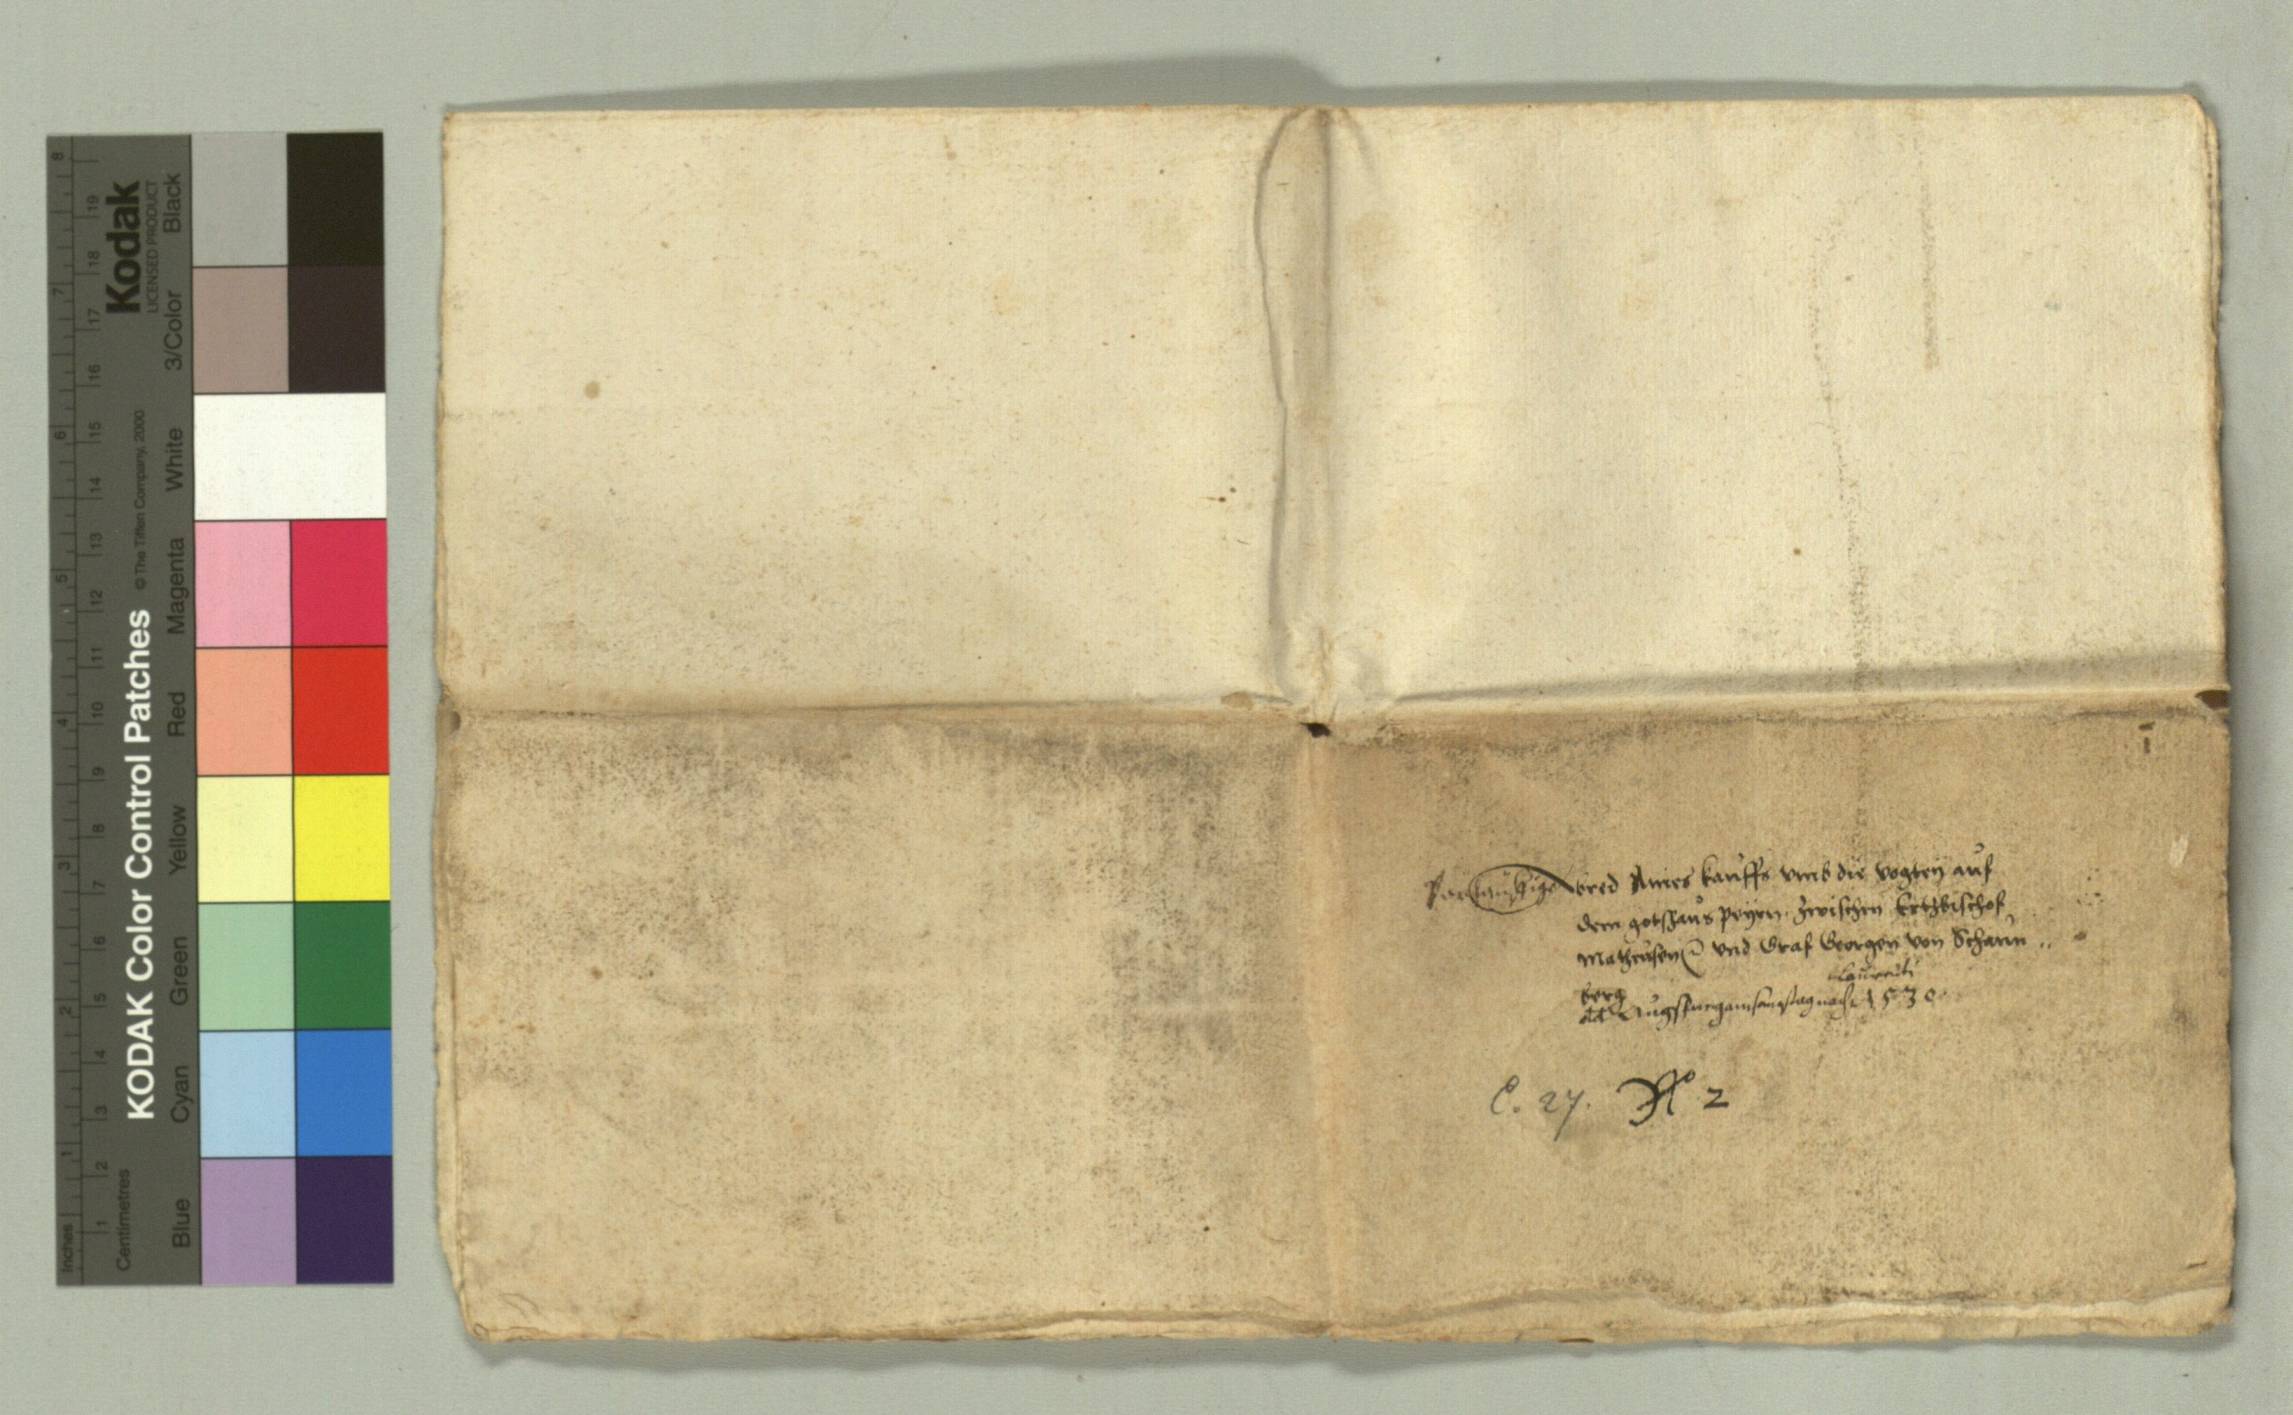 Kodak
LICENSED PRODUCT
KODAK Color Control Patches © The Tiffen Company, 2000
Blue Cyan Green Yellow Red Magenta White 3/Color Black
Inches 1 2 3 4 5 6 7 8
Centimetres 1 2 3 4 5 6 7 8 9 10 11 12 13 14 15 16 17 18 19
abred Aines kauffs vmb die vogtey auf
dem gotshaus peyrn zwischen Ertzbischof
Matheusen und Graf Georgen von Schaun
berg
Laurenti
dd Augspurg am sampstag nach 1530
C. 27. N 2